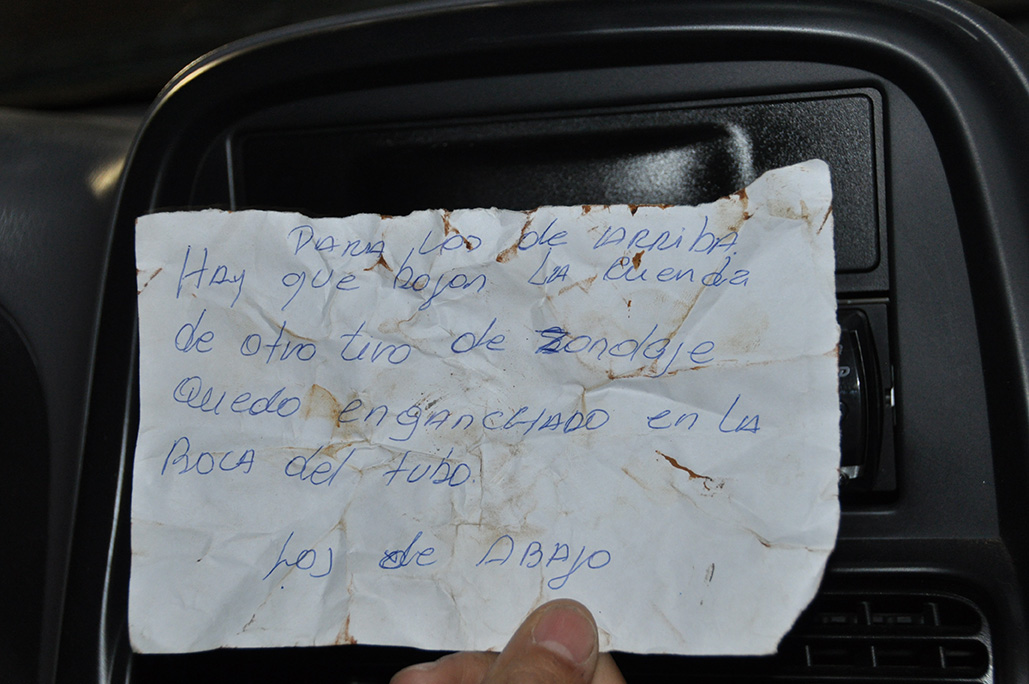 PARA LOS de ARRIBA
HAy que bajar LA Cuerda
de otro tiro de Zondaje
Quedo enganchado en LA
BOCA del tubo.
Los de ABAJO